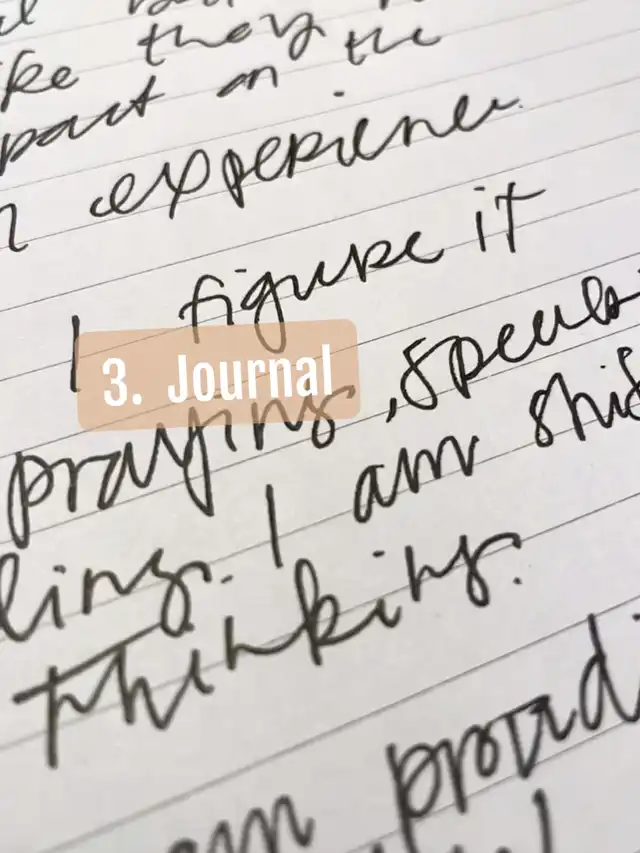 ke they
pact on the
experience
I figure it
3. Journal
praying, speak
ling. I am shif
thinking.
am proud